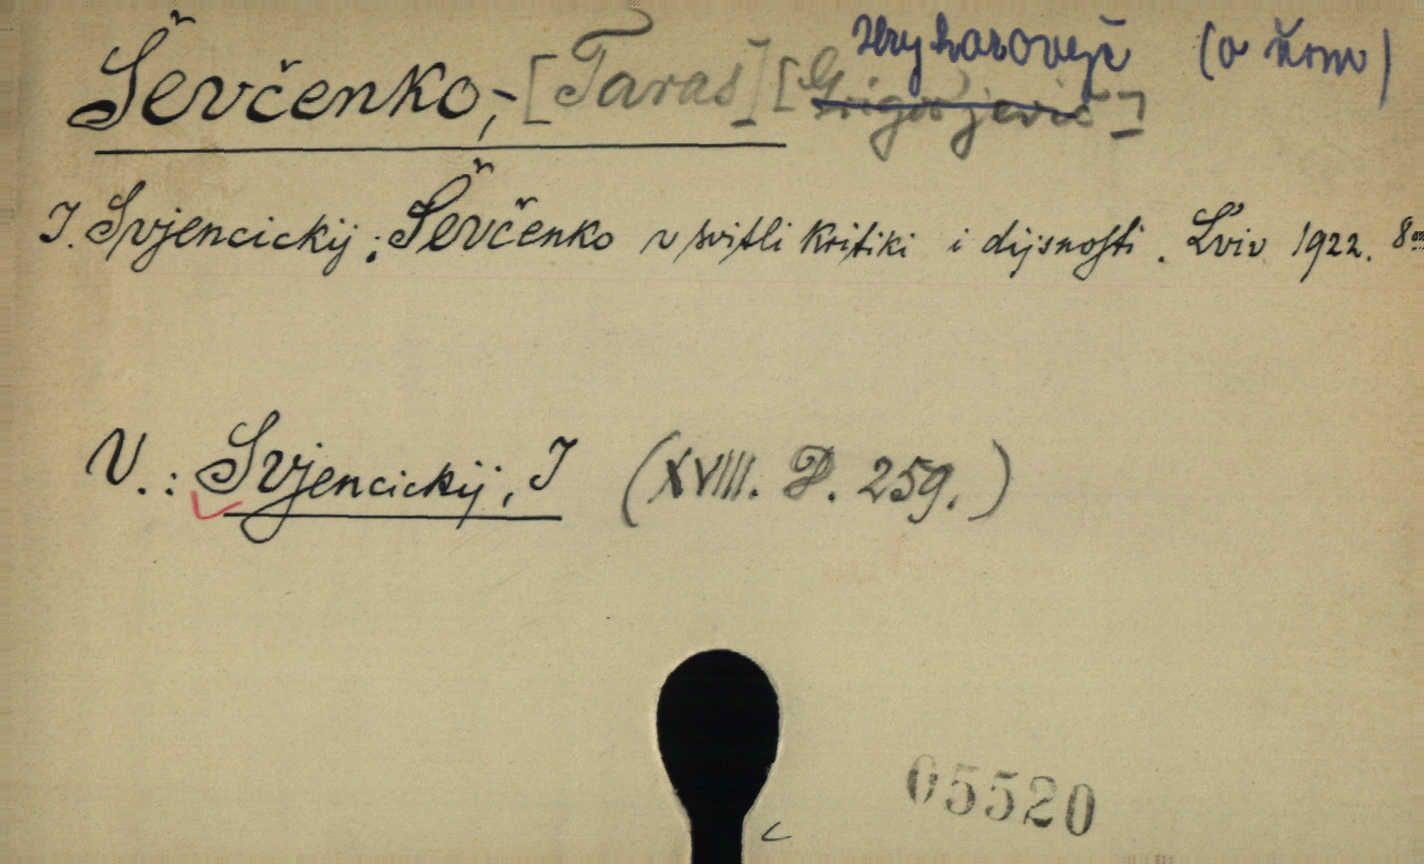 Ševčenko, - [Taras] [Grigorjevič] (o ňom)
I. Svjencickij: Ševčenko v svitli kritiki i dijsnosti. L'viv 1922. 8°
V.: Svjencickij, I (XVIII. D. 259.)
05520